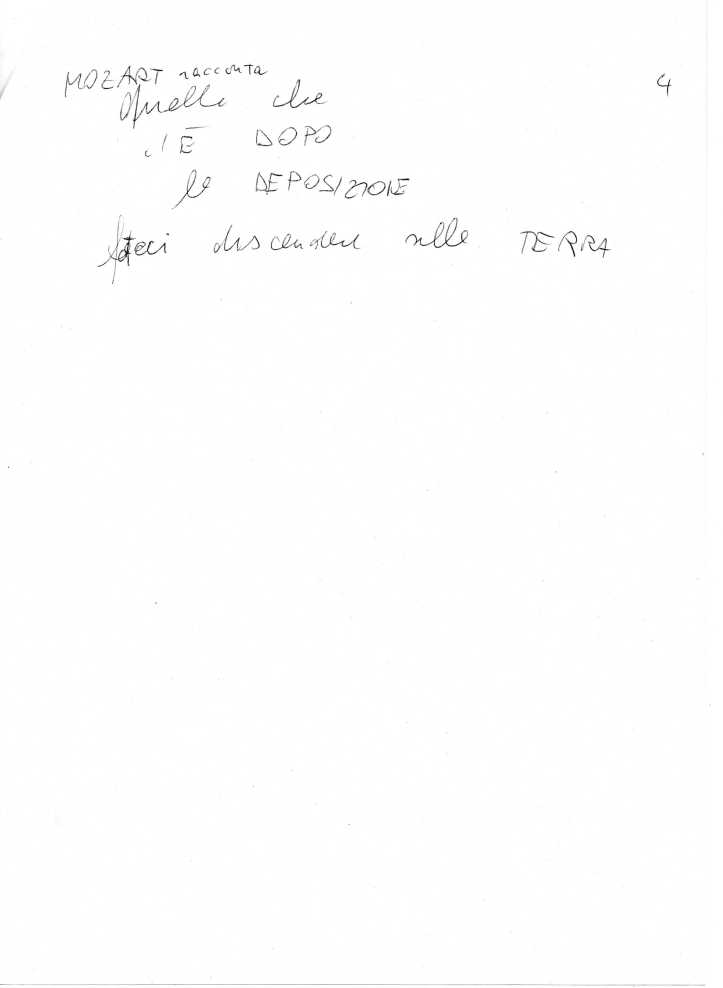 MOZART racconta
4
Quello che
c'È DOPO
la DEPOSIZIONE
discendere sulla TERRA